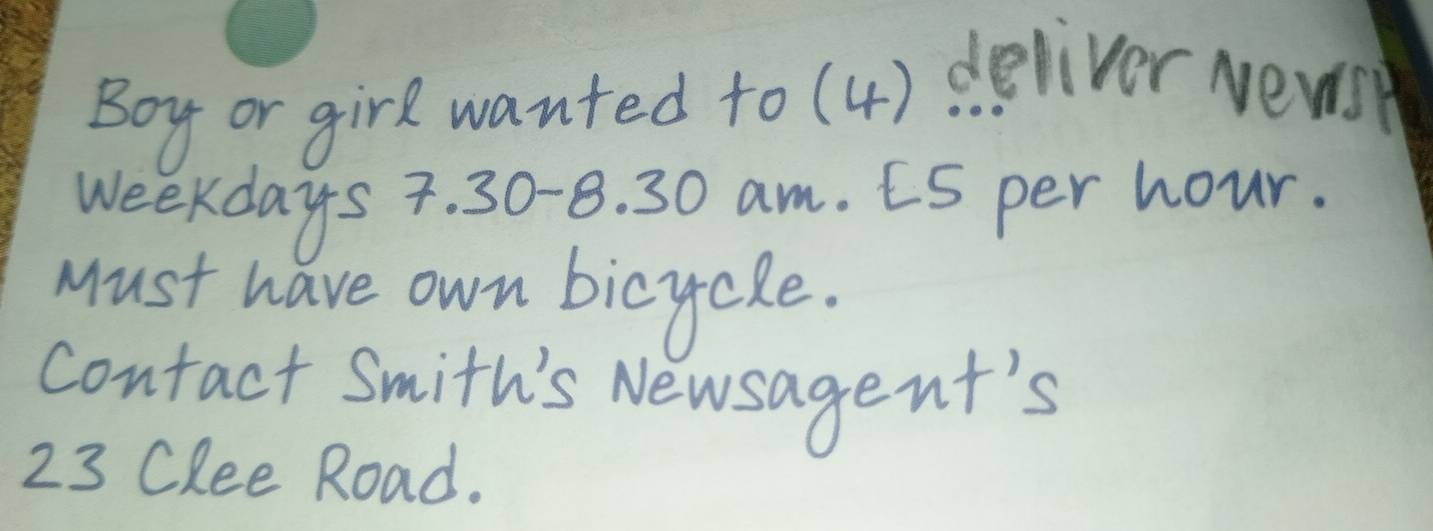 Boy or girl wanted to (4) ... deliver Newsp
Weekdays 7.30-8.30 am. £5 per hour.
Must have own bicycle.
Contact Smith's Newsagent's
23 Clee Road.